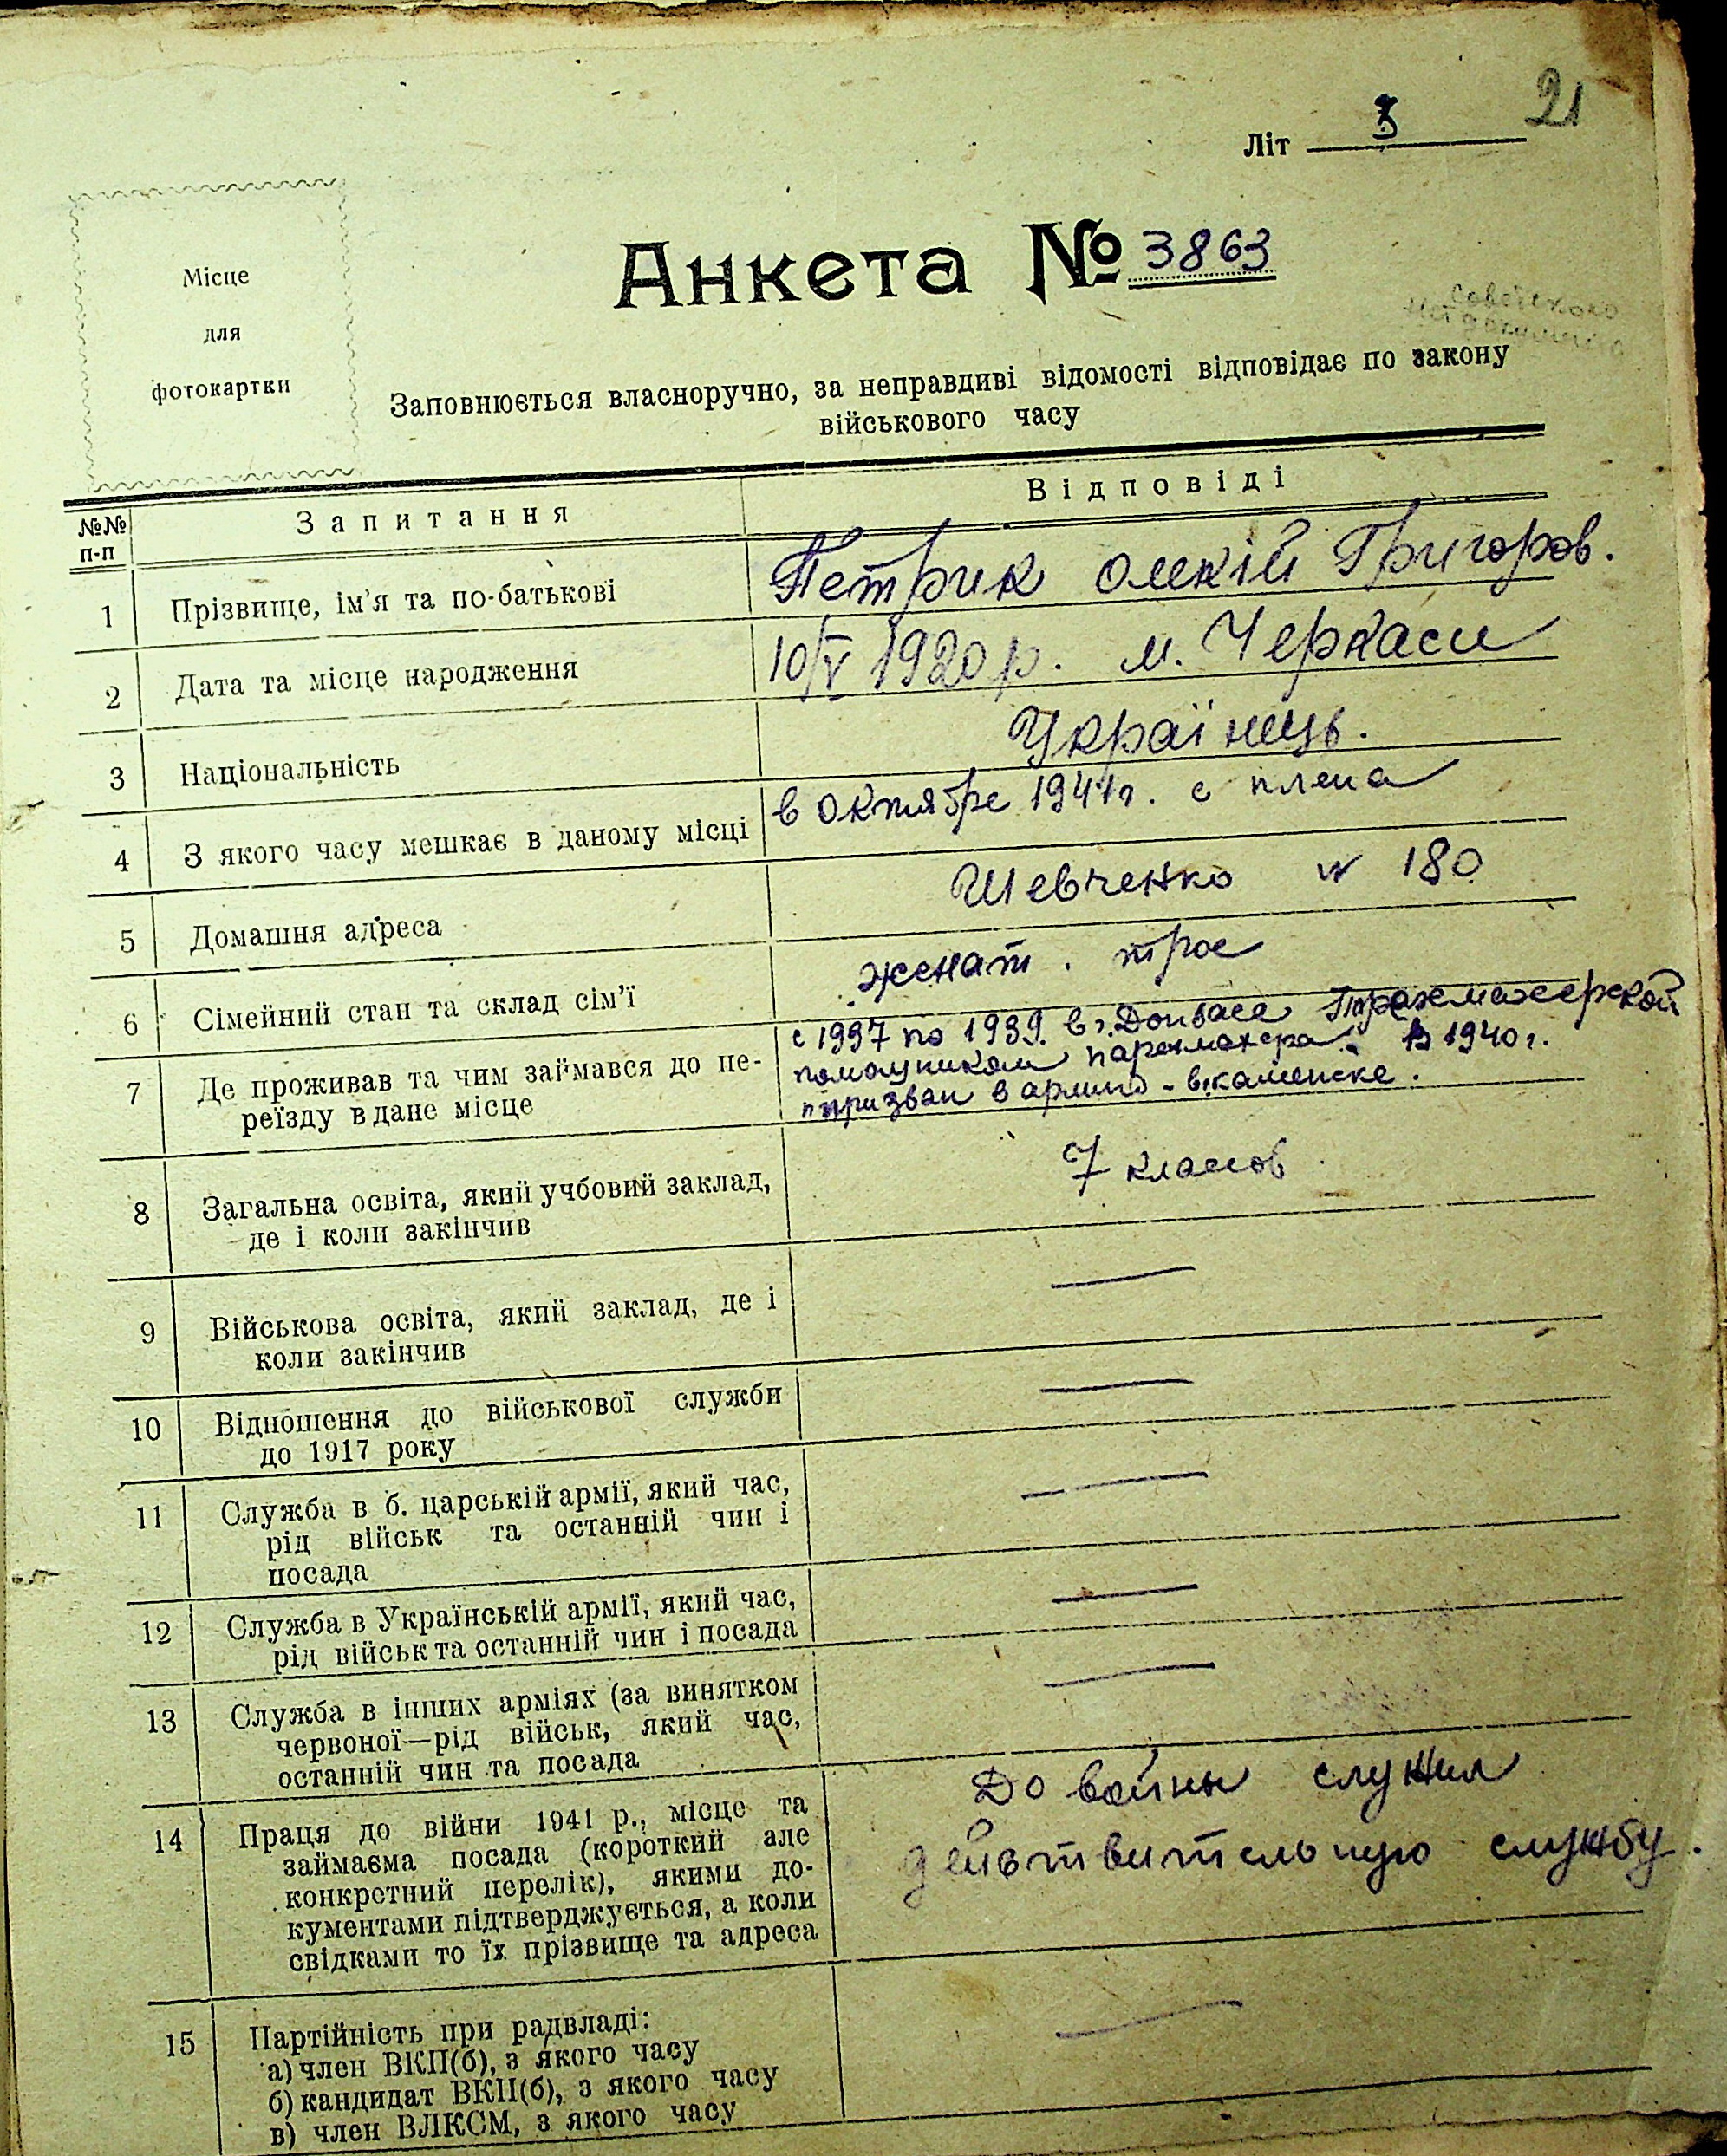 21
Літ
Місце
для
фотокартки
Анкета № 3863
Заповнюється власноручно, за неправдиві відомості відповідає по закону
військового часу
№№
п-п
Запитання
Відповіді
1
Прізвище, ім'я та по-батькові
Петрик Олекій Григоров.
2
Дата та місце народження
10/V 1920 р. м. Черкаси
3
Національність
Українець.
4
З якого часу мешкає в даному місці
в Октябре 1941 г. с плена
5
Домашня адреса
Шевченко № 180
6
Сімейний стан та склад сім'ї
женат. трое
7
Де проживав та чим займався до пе-
реїзду в дане місце
с 1937 по 1939 в г. Донбасе
помощником парехмахера. В 1940 г.
призван в армию - в г. каменске.
8
Загальна освіта, який учбовий заклад,
де і коли закінчив
7 класов
9
Військова освіта, який заклад, де і
коли закінчив
—
10
Відношення до військової служби
до 1917 року
—
11
Служба в б. царській армії, який час,
рід військ та останній чин і
посада
—
12
Служба в Українській армії, який час,
рід військ та останній чин і посада
—
13
Служба в інших арміях (за винятком
червоної—рід військ, який час,
останній чин та посада
—
14
Праця до війни 1941 р., місце та
займаєма посада (короткий але
конкретний перелік), якими до-
кументами підтверджується, а коли
свідками то їх прізвище та адреса
До войны служил
действительную службу.
15
Партійність при радвладі:
а) член ВКП(б), з якого часу
б) кандидат ВКП(б), з якого часу
в) член ВЛКСМ, з якого часу
—